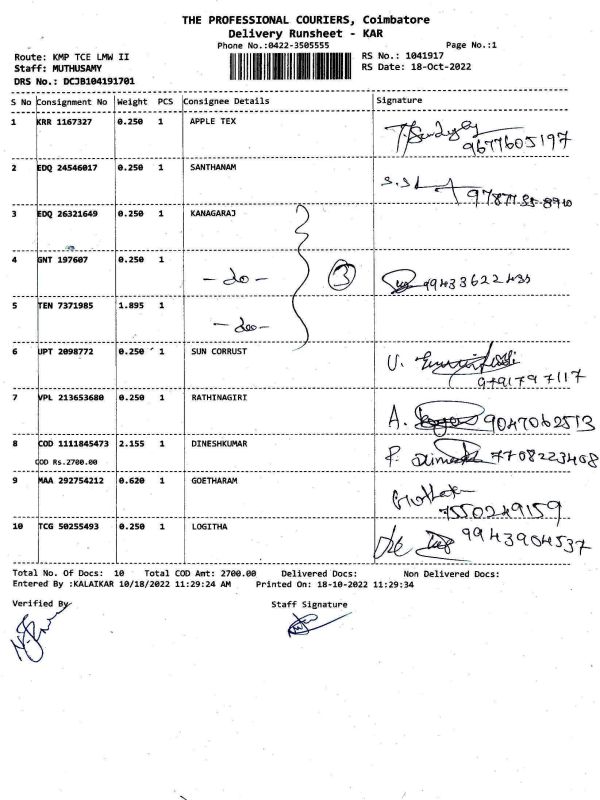 THE PROFESSIONAL COURIERS, Coimbatore
Delivery Runsheet - KAR
Phone No.:0422-3505555 Page No.:1
Route: KMP TCE LMW II RS No.: 1041917
Staff: MUTHUSAMY RS Date: 18-Oct-2022
DRS No.: DCJB104191701
S No Consignment No Weight PCS Consignee Details Signature
1 KRR 1167327 0.250 1 APPLE TEX
9677605197
2 EDQ 24546017 0.250 1 SANTHANAM
3 EDQ 26321649 0.250 1 KANAGARAJ
4 GNT 197607 0.250 1
- do - 3 99433622433
5 TEN 7371985 1.895 1
- do -
6 UPT 2098772 0.250 1 SUN CORRUST
U.
9791797117
7 VPL 213653680 0.250 1 RATHINAGIRI
A. 9047062513
8 COD 1111845473 2.155 1 DINESHKUMAR
COD Rs.2700.00 7708223408
9 MAA 292754212 0.620 1 GOETHARAM
7550249159
10 TCG 50255493 0.250 1 LOGITHA
9943904537
Total No. Of Docs: 10 Total COD Amt: 2700.00 Delivered Docs: Non Delivered Docs:
Entered By :KALAIKAR 10/18/2022 11:29:24 AM Printed On: 18-10-2022 11:29:34
Verified By Staff Signature